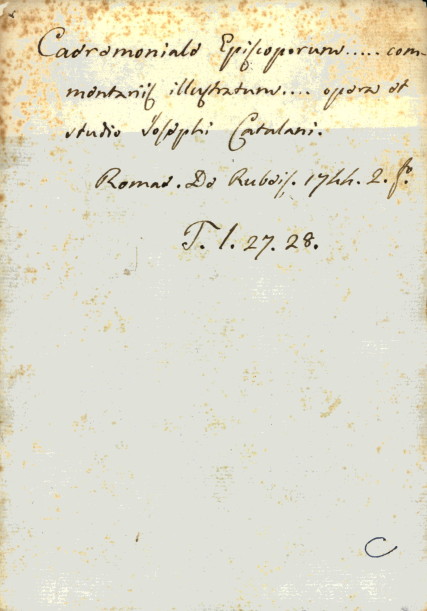 Caeremoniale Episcoporum ..... com-
mentariis illustratum .... opera et
studio Josephi Catalani.
Romae. De Rubeis. 1744. 2. fo.
T. l. 27. 28.
C